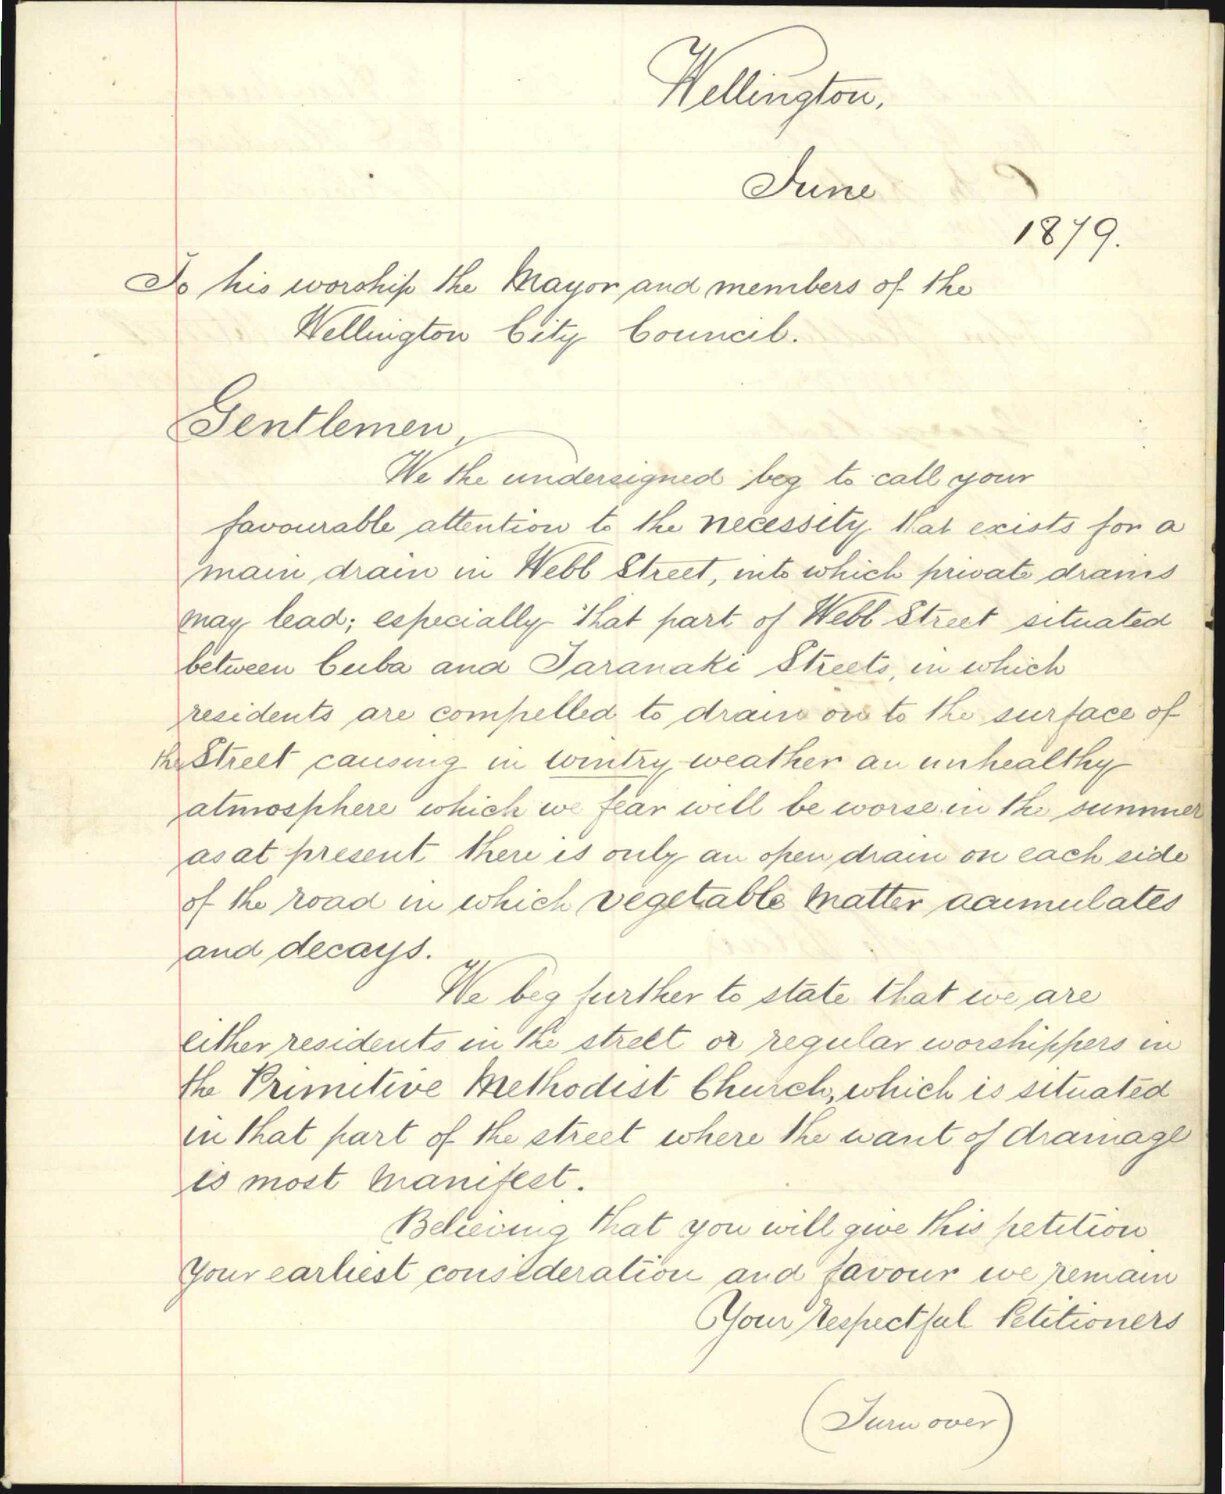 Wellington,
June
1879.
To his worship the Mayor and members of the
Wellington City Council.
Gentlemen,
We the undersigned beg to call your
favourable attention to the necessity that exists for a
main drain in Webb Street, into which private drains
may lead; especially that part of Webb Street situated
between Cuba and Taranaki Streets, in which
residents are compelled to drain on to the surface of
the Street causing in wintry weather an unhealthy
atmosphere which we fear will be worse in the summer
as at present there is only an open drain on each side
of the road in which vegetable matter accumulates
and decays.
We beg further to state that we are
either residents in the street or regular worshippers in
the Primitive Methodist Church, which is situated
in that part of the street where the want of drainage
is most manifest.
Believing that you will give this petition
your earliest consideration and favour we remain
Your respectful Petitioners
(Turn over)